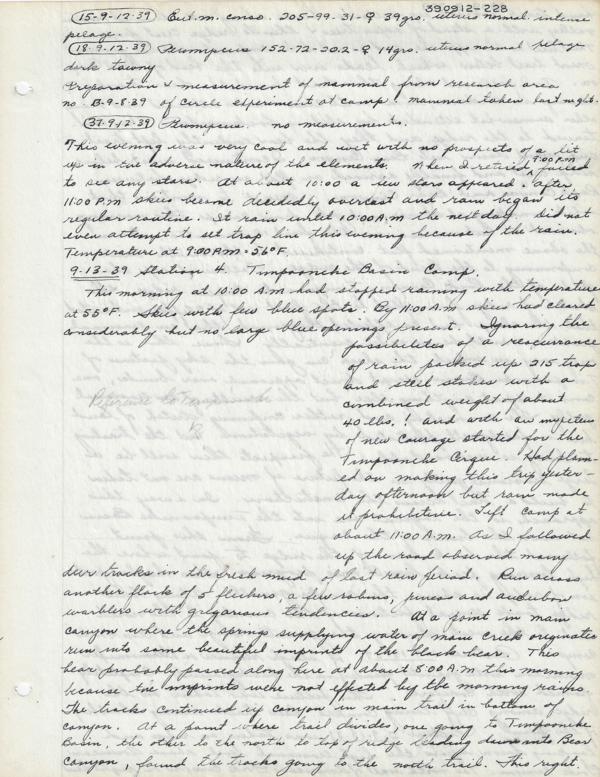 390912-228
(15-9-12-39) Eut.m. conso. 205-99-31-♀ 39gro. uterus normal. intense
pelage.
(18-9-12-39) Peromyscus 152-72-20.2-♀ 14gro. uterus normal pelage
dark tawny
Preparation & measurement of mammal from research area
no. B-9-8-39 of circle experiment at camp. mammal taken last night.
(37-9-12-39) Peromyscus. no measurements.
This evening was very cool and wet with no prospects of a let
up in the adverse nature of the elements. When I retired 9:00 P.M failed
to see any stars. At about 10:00 a few stars appeared. After
11:00 P.M skies became decidedly overcast and rain began its
regular routine. It rain until 10:00 A.M the next day. Did not
even attempt to set trap line this evening because of the rain.
Temperature at 9:00 P.M = 56°F.
9-13-39 Station 4. Timpooneke Basin Camp.
This morning at 10:00 A.M had stopped raining with temperature
at 55°F. Skies with few blue spots. By 11:00 A.M skies had cleared
considerably but no large blue openings present. Ignoring the
possibilities of a reoccurance
of rain packed up 215 trap
and steel stakes with a
combined weight of about
40 lbs.! and with an impetus
of new courage started for the
Timpooneke Cirque. Had plann-
ed on making this trip yester-
day afternoon but rain made
it prohibitive. Left camp at
about 11:00 A.M. As I followed
up the road observed many
deer tracks in the fresh mud of last rain period. Run across
another flock of 5 flickers, a few robins, juncos and audubon
warblers with gregarious tendencies. At a point in main
canyon where the springs supplying water of main creek originates
run into some beautiful imprints of the black bear. This
bear probably passed along here at about 8:00 A.M this morning
because the imprints were not effected by the morning rains.
The tracks continued up canyon in main trail in bottom of
canyon. At a point where trail divides, one going to Timpooneke
Basin, the other to the north to top of ridge leading down into Bear
Canyon, found the tracks going to the north trail. This right